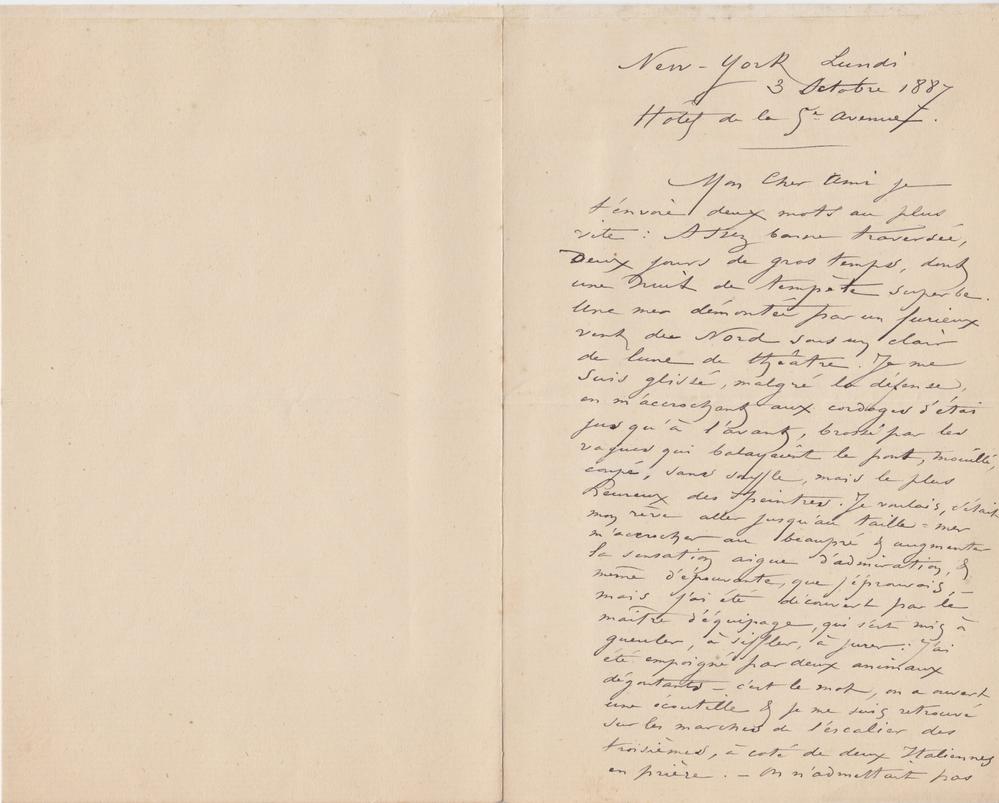 New-York Lundi
3 Octobre 1887
Hotel de la 5e Avenue.
Mon Cher Ami je
t'envoie deux mots au plus
vite : Assez bonne traversée,
Deux jours de gros temps, dont
une Nuit de tempête superbe.
Une mer démontée par un furieux
vent du Nord sous un clair
de lune de théâtre. Je me
suis glissé, malgré la défense,
en m'accrochant aux cordages d'étai
jusqu'à l'avant, brossé par les
vagues qui balayaient le pont, mouillé,
coupé, sans souffle, mais le plus
heureux des peintres. Je voulais, c'était
mon rêve aller jusqu'au taille-mer
m'accrocher au beaupré & augmenter
la sensation aigue d'admiration, &
même d'épouvante, que j'éprouvais,
mais j'ai été découvert par le
maître d'équipage, qui s'est mis à
gueuler, à siffler, à jurer : J'ai
été empoigné par deux animaux
dégoutants — c'est le mot, on a ouvert
une écoutille & je me suis retrouvé
sur les marches de l'escalier des
troisièmes, à coté de deux Italiennes
en prière. — On n'admettait pas